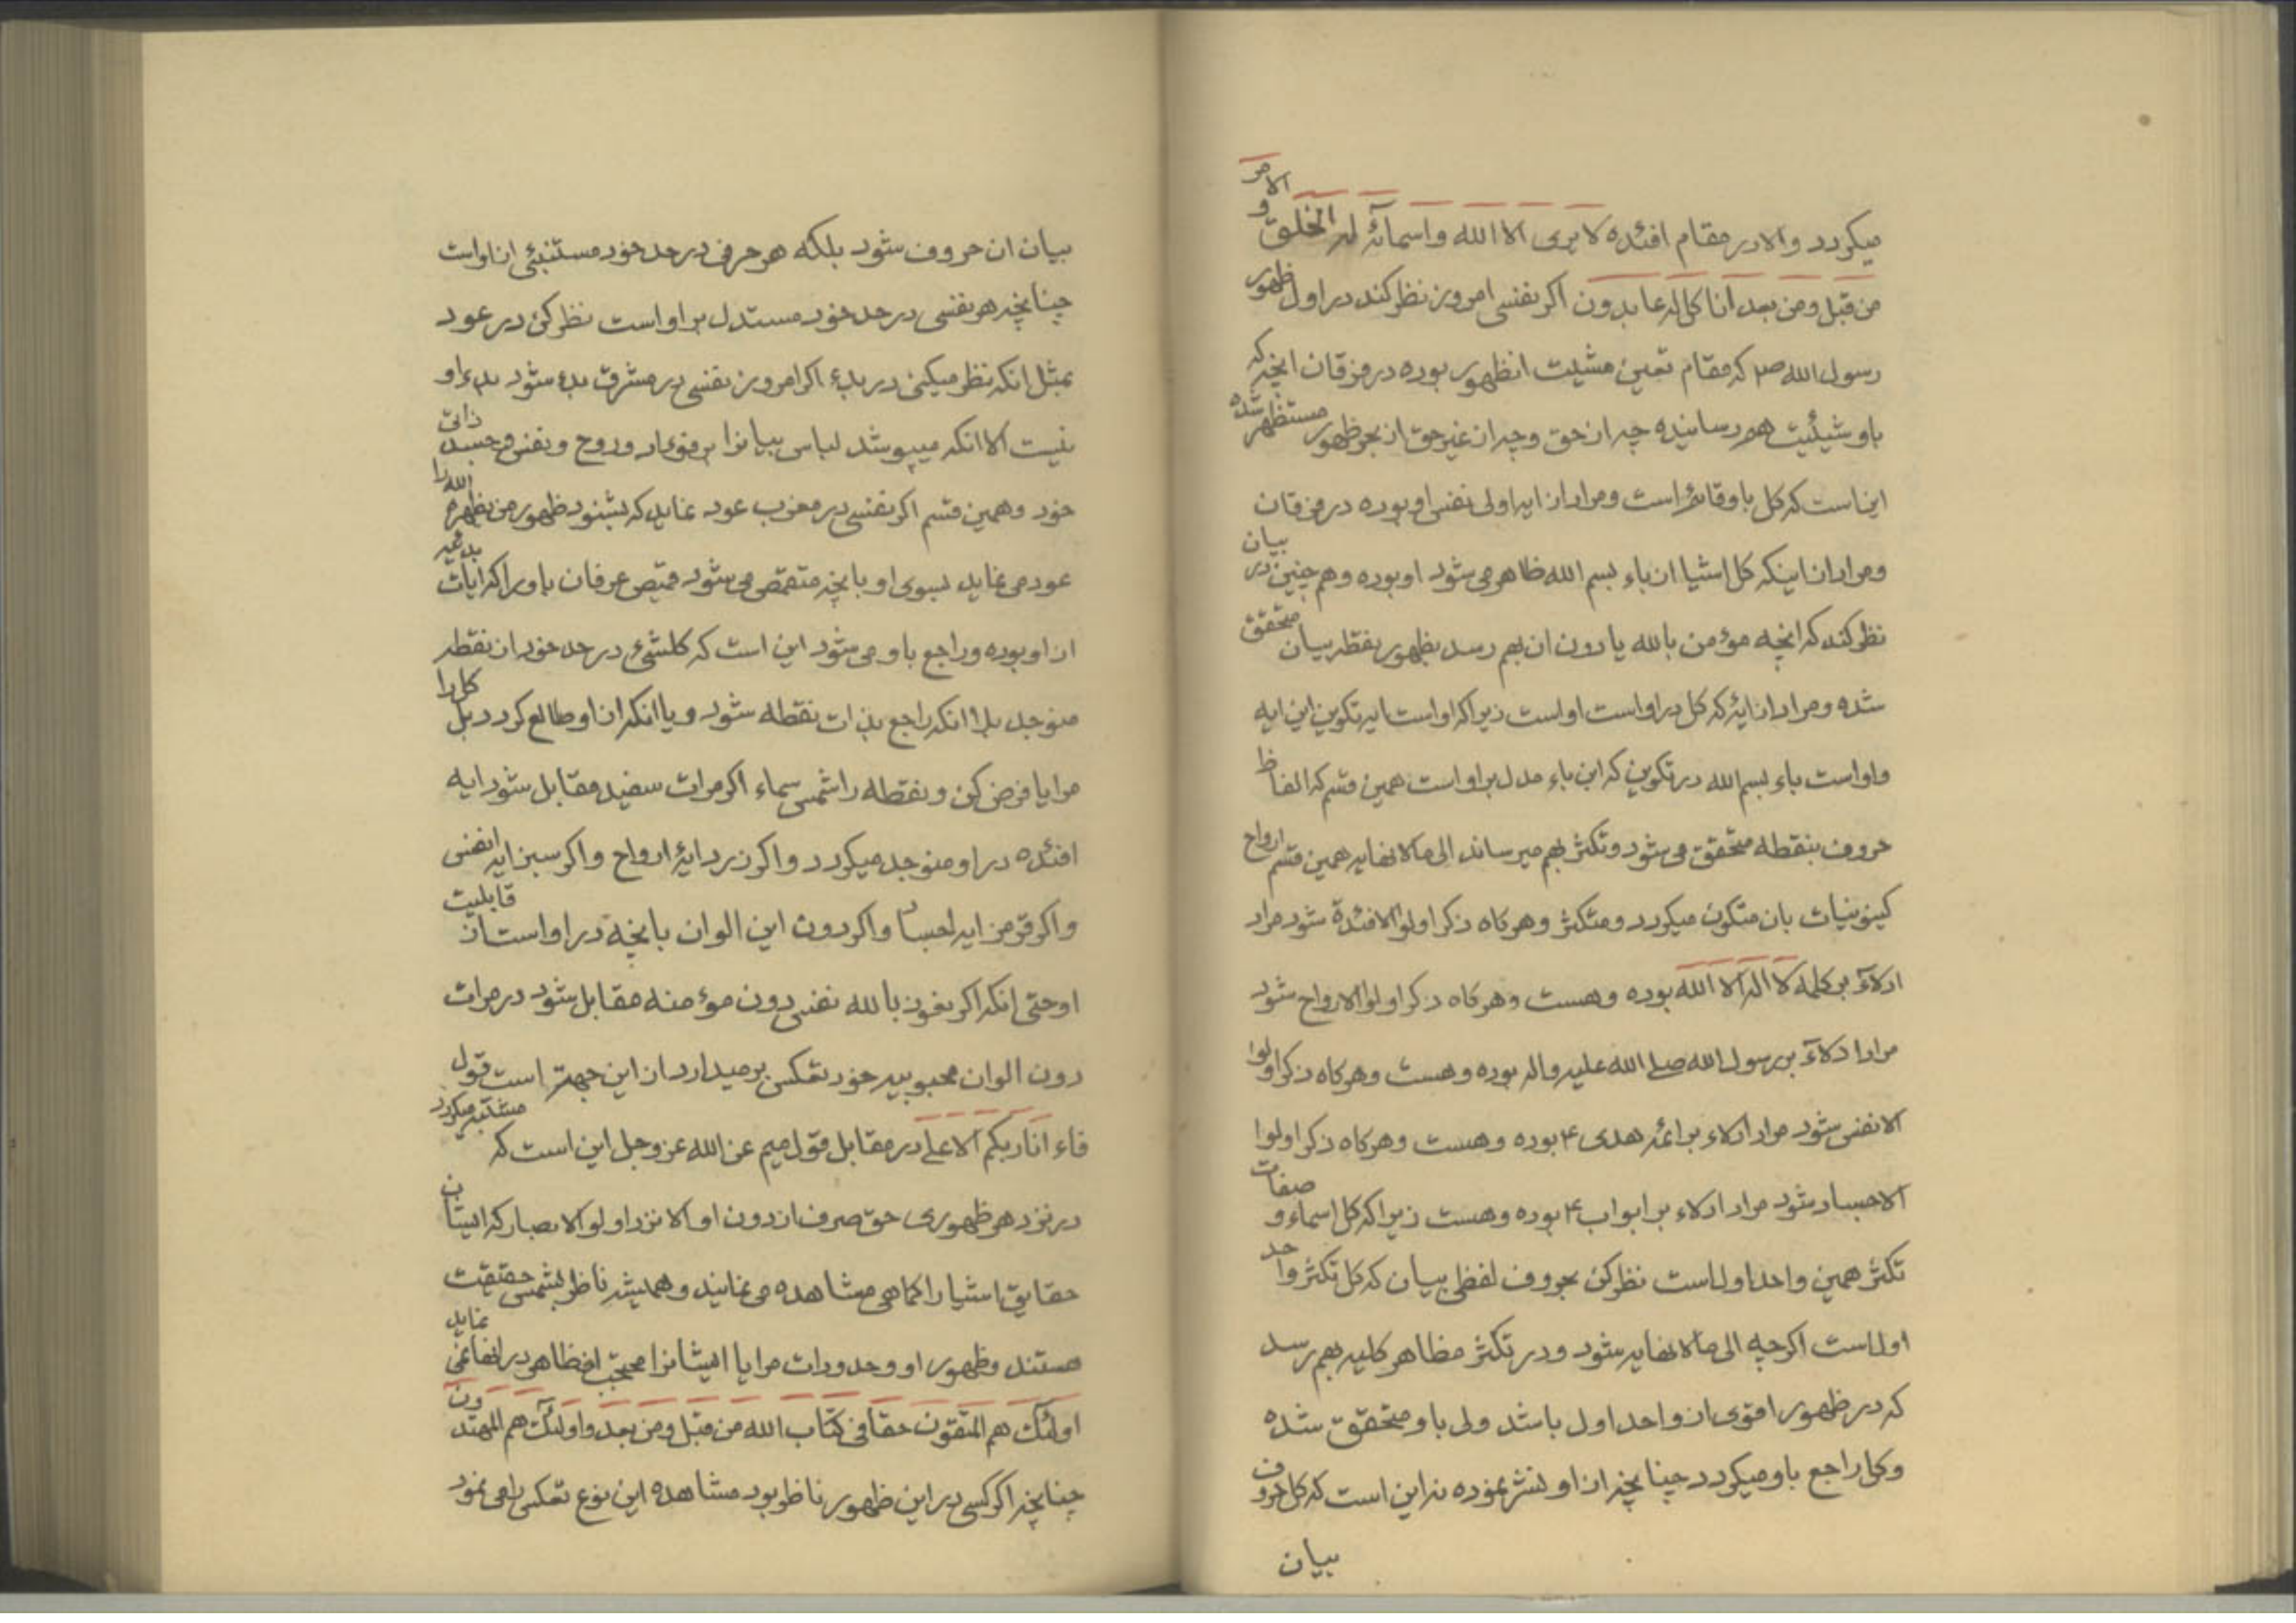 میکردد والا در مقام افئده لا یری الا الله واسمائه له الخلق و الامر
من قبل ومن بعد انا کل له عابدون اکر نفسی امروز نظر کند در اول ظهور
رسول الله ص که مقام تعین مشیت انظهور بوده در فرقان انچه که
باو شیئیت هم رسانیده چه از حق وچه از غیر حق از بحر ظهور مستظهر شده
این است که کل باو قائم است ومراد از ایه اولی نفس او بوده در فرقان
ومراد از اینکه کل اشیا از باء بسم الله ظاهر می شود او بوده وهم چنین در بیان
نظر کند که انچه مؤمن بالله یا دون ان بهم رسد بظهور نقطه بیان متحقق
شده ومراد از ایه که کل در او است او است زیرا که او است ایه تکوین این ایه
واو است باء بسم الله در تکوین که این باء مدل بر او است همین قسم که الفاظ
حروف بنقطه متحقق می شود وتکثر بهم میرساند الی ما لا نهایه همین قسم ارواح
کینونیات بان متکون میکردد ومتکثر وهر کاه ذکر اولو الافئدة شود مراد
ادلاء بر کلمه لا اله الا الله بوده وهست وهر کاه ذکر اولوا الارواح شود
مراد ادلاء بر رسول الله صلی الله علیه واله بوده وهست وهر کاه ذکر اولوا
الانفس شود مراد ادلاء بر ائمه هدی ع بوده وهست وهر کاه ذکر اولوا
الاجساد شود مراد ادلاء بر ابواب ع بوده وهست زیرا که کل اسماء و صفات
تکثر همین واحد اول است نظر کن بحروف لفظی بیان که کل تکثر واحد
اول است اکر چه الی ما لا نهایه شود ودر تکثر مظاهر کلیه بهم رسد
که در ظهور اقوی از واحد اول باشد ولی باو متحقق شده
وکل راجع باو میکردد چنانچه از او نشر نموده نه این است که کل حروف
بیان
بیان ان حروف شود بلکه هر حرفی در حد خود مستنبئی از او است
چنانچه هر نفسی در حد خود مستدل بر او است نظر کن در عود
بمثل انکه نظر میکنی در بدء اکر امروز نفسی در مشرق بدء شود بدء او
نیست الا انکه میپوشد لباس بیانرا بر فؤاد وروح ونفس وجسد ذاتی
خود وهمین قسم اکر نفسی در مغرب عود نماید که بشنود ظهور من یظهره الله را
عود می نماید بسوی او بانچه متقمص می شود قمیص عرفان باو را که ایات بدعیه
از او بوده وراجع باو می شود این است که کلشیء در حد خود از نقطه
منوجد بلا انکه راجع بذات نقطه شود ویا انکه از او طالع کردد بل کل را
مرایا فرض کن ونقطه را شمس سماء اکر مرات سفید مقابل شود ایه
افئده در او منوجد میکردد واکر زرد ایه ارواح واکر سبز ایه انفس
واکر قرمز ایه اجساد واکر دون این الوان بانچه در او است از قابلیت
او حتی انکه اکر نعوذ بالله نفسی دون مؤمنه مقابل شود در مرات
دون الوان محبوبیه خود تعکس بر میدارد از این جهة است قول
فاء انا ربکم الاعلی در مقابل قول میم عن الله عز وجل این است که مشتبه میکردد
در نزد هر ظهوری حق صرف از دون او الا نزد اولو الابصار که ایشان
حقایق اشیا را کماهی مشاهده می نمایند وهمیشه ناظر بشمس حقیقت
هستند وظهور او وحدودات مرایا ایشانرا محتجب از ظاهر در انها نمی نماید
اولئک هم المتقون حقا فی کتاب الله من قبل ومن بعد واولئک هم المهتدون
چنانچه اکر کسی در این ظهور ناظر بود مشاهده این نوع تعکس را می نمود